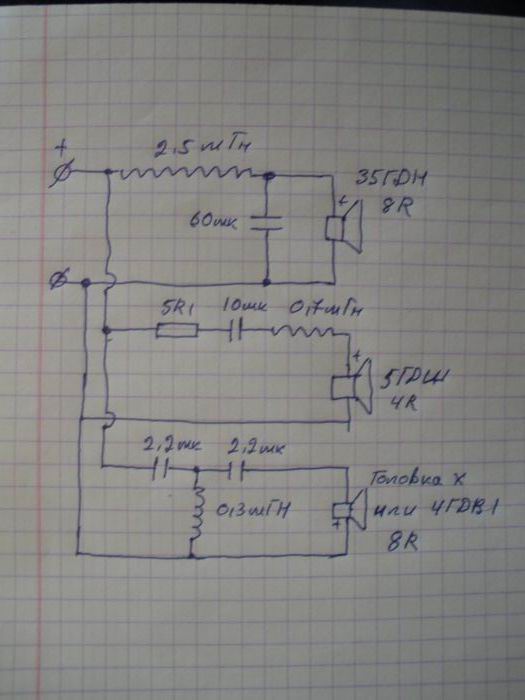 +
2,5мГн
35ГДН
8R
60мк
+
5R1
10мк
0,7мГн
+
5ГДШ
4R
2,2мк
2,2мк
0,3мГН
Головка X
или 4ГДВ1
+
8R